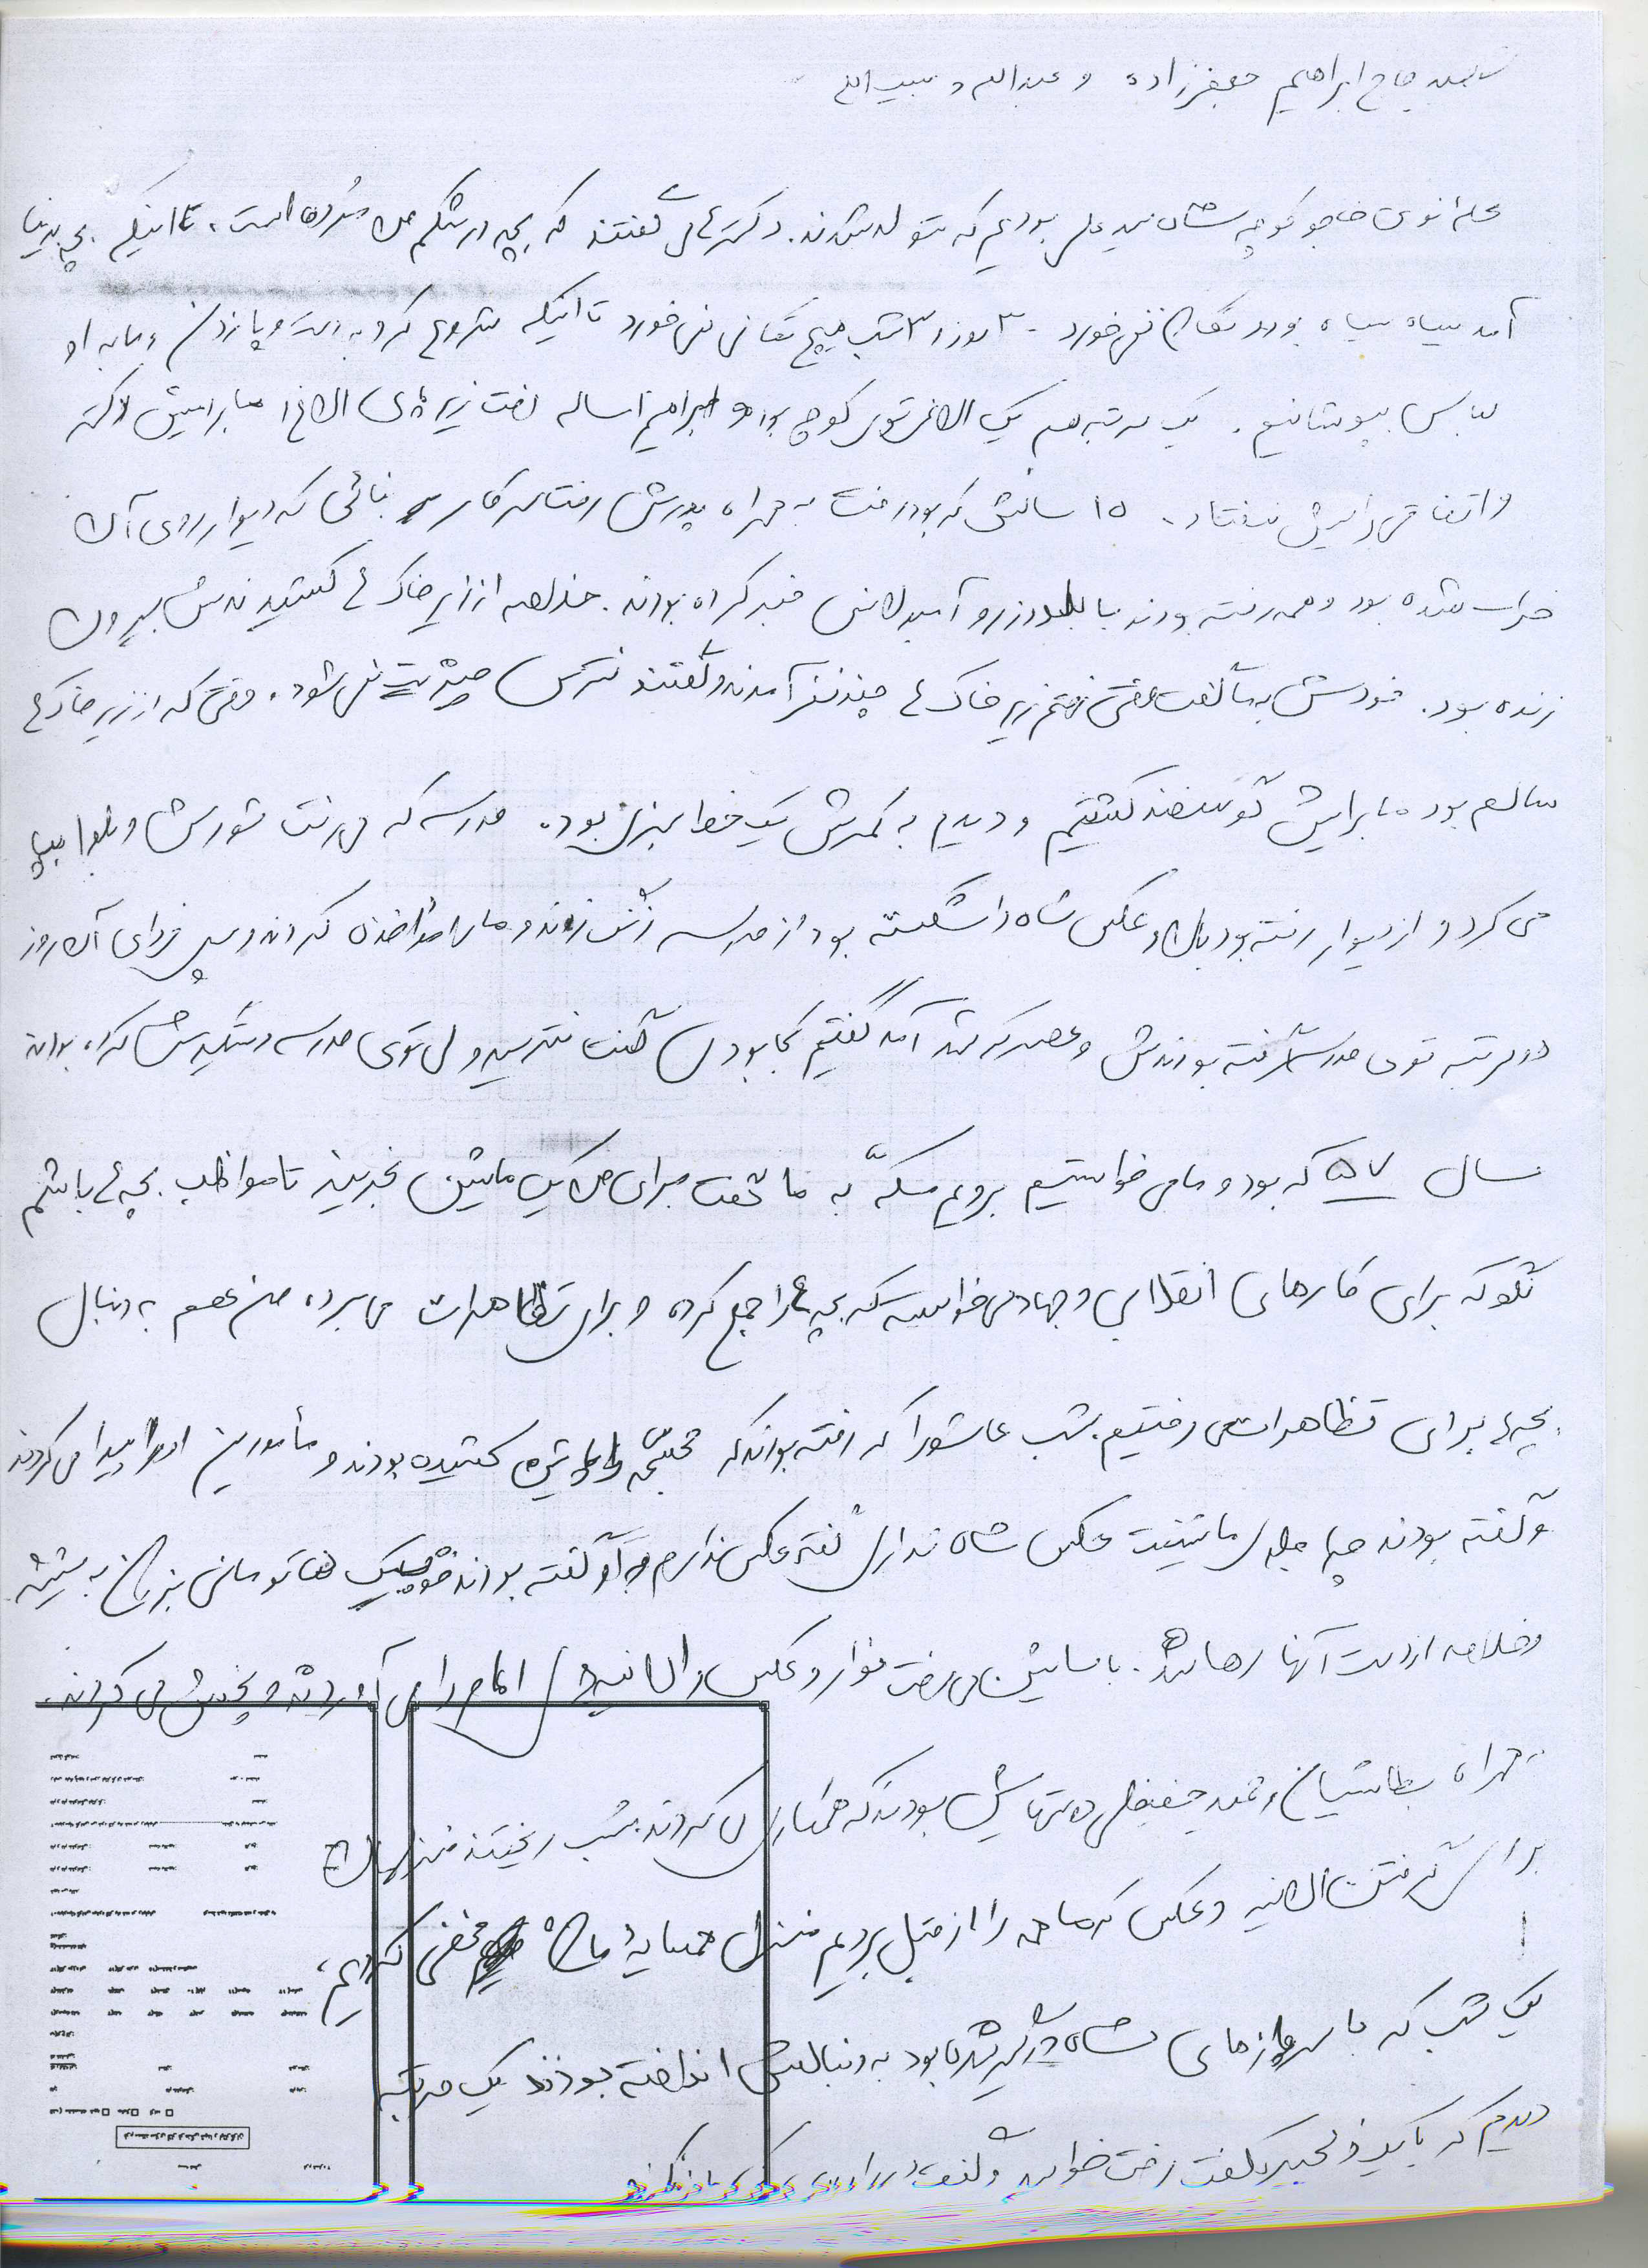 شهید حاج ابراهیم جعفرزاده و عبداله و
محله نوی خاجو کوچه سید علی بودیم که متولد شدند. دکترها می گفتند که بچه در شکم من مُرده است، تا اینکه بچه بدنیا
آمد سیاه سیاه بود و تکان نمی خورد. ۳ روز و ۳ شب هیچ تکانی نمی خورد تا اینکه شروع کرد به دست و پا زدن و ما به او
لباس پوشاندیم. یک مرتبه هم یک الاغی توی کوچه بود و ابراهیم ساله رفت زیر پای الاغ
و اتفاقی برایش نیفتاد. ۱۵ سالش که بود رفت به همراه پدرش رفت سر کار بنائی که دیوار روی آن
خراب شده بود و همه رفته بودند با بلدوزر و آمبولانس خبر کرده بودند. خلاصه از زیر خاک ها کشیدندش بیرون
زنده بود. خودش به ما گفت وقتی رفتم زیر خاک ها چند نفر آمدند و گفتند نترس چیزیت نمی شود. وقتی که از زیر خاک ها
سالم بود ما برایش گوسفند کشتیم و دیدیم به کمرش یک خط سبزی بود. مدرسه که می رفت شورش و بلوا بپا
می کرد و از دیوار رفته بود بالا و عکس شاه را شکسته بود از مدرسه زنگ زدند و ما را مؤاخذه کردند و پس فردای آن روز
دو مرتبه توی مدرسه گرفته بودندش و عصر که شد آمد گفتیم کجا بودی گفت نترسید ولی توی مدرسه دستگیرش کرده بودند
سال ۵۷ که بود و ما می خواستیم برویم مکّه به ما گفت برای من یک ماشین بخرید تا مواظب بچه ها باشم
نگو که برای کارهای انقلابی و جهاد می خواست که بچه ها را جمع کرده و برای تظاهرات می برد، من هم به دنبال
بچه ها برای تظاهرات می رفتیم، شب عاشورا که رفته بودند که مجسّمه را پائین کشیده بودند و مأمورین او را پیدا می کردند
و گفته بودند چرا جلوی ماشینت عکس شاه نداری گفته عکس ندارم به او گفته بودند تومانی بزن به شیشه
و خلاصه از دست آنها رها شد. با ماشین می رفت نوار و عکس و اعلانیه های امام را می آوردند و پخش می کردند.
به همراه و شهید دوستهایش بودند که همکاری می کردند، شب ریختند منزلمان
برای گرفتن اعلانیه و عکس که ما همه را از قبل بردیم منزل همسایه مان مخفی کردیم،
یک شب که با سربازهای شاه درگیر شده بود به دنبالش انداخته بودند یک مرتبه
دیدیم که گفت رفت خوابید و گفت